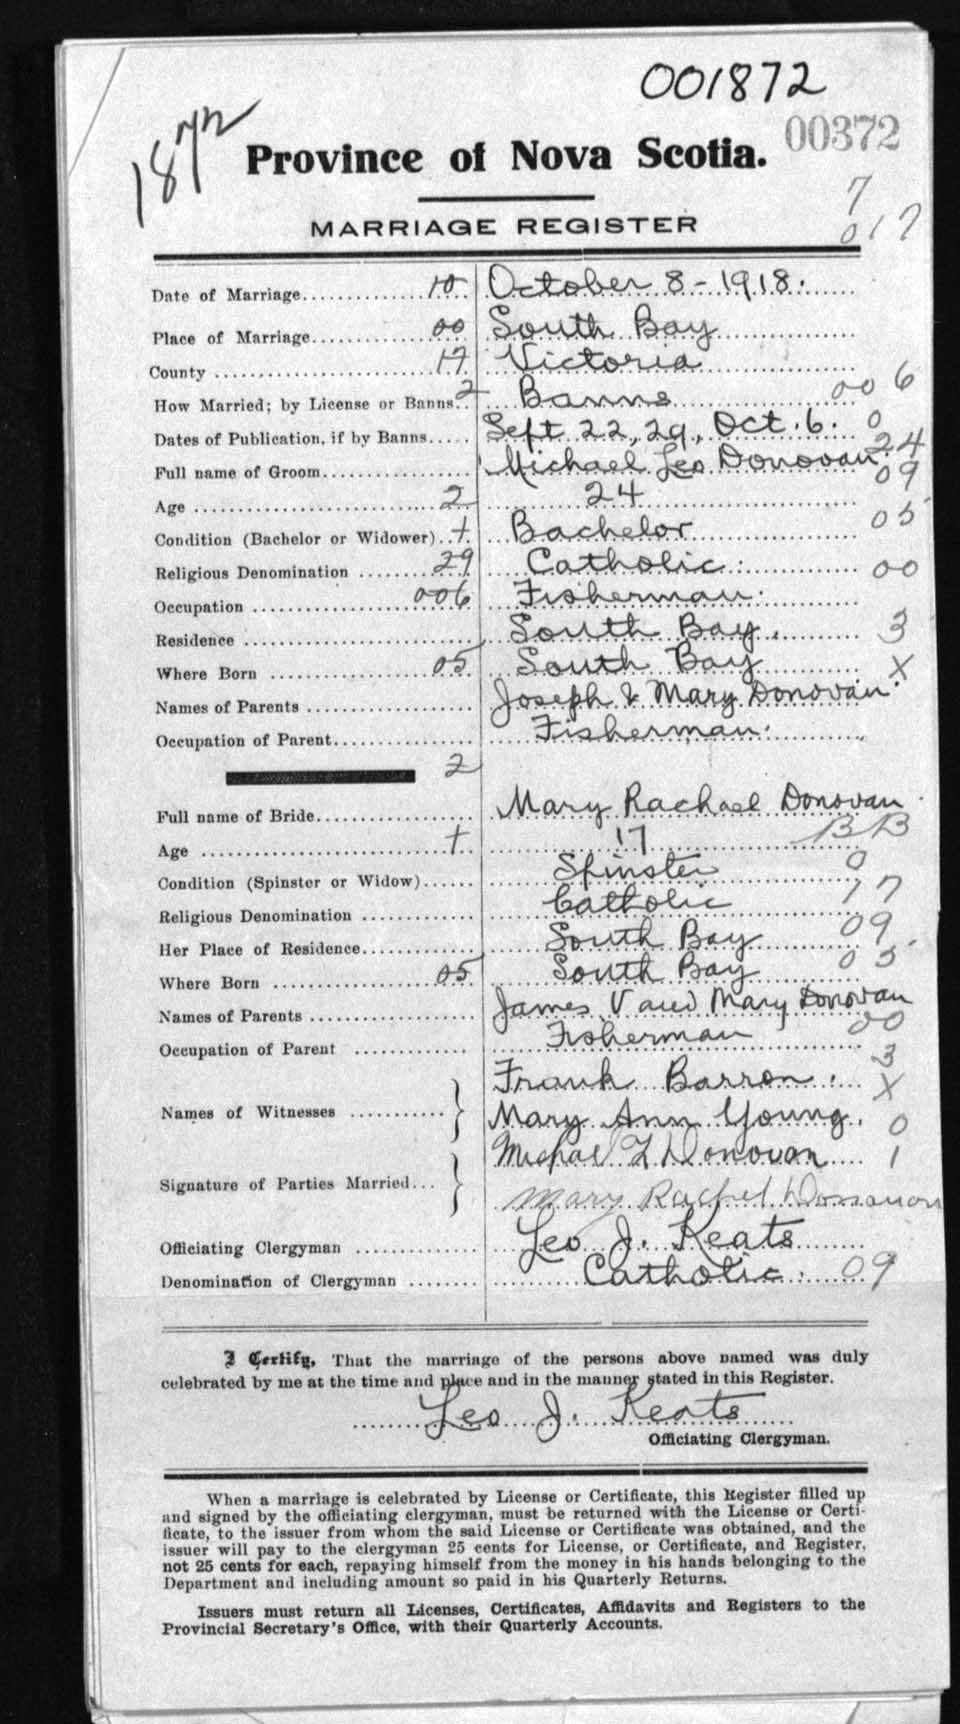 001872
1872
00372
Province of Nova Scotia.
7
017
MARRIAGE REGISTER
Date of Marriage 10 October 8 - 1918.
Place of Marriage 00 South Bay
County 17 Victoria
How Married; by License or Banns 2 Banns 00 6
Dates of Publication, if by Banns Sept 22, 29, Oct. 6. 0
Full name of Groom Michael Leo Donovan 24
09
Age 2 24
Condition (Bachelor or Widower) + Bachelor 05
Religious Denomination 29 Catholic. 00
Occupation 006 Fisherman.
Residence South Bay. 3
Where Born 05 South Bay X
Names of Parents Joseph & Mary Donovan.
Occupation of Parent Fisherman.
2
Full name of Bride Mary Rachael Donovan
Age + 17 BB
Condition (Spinster or Widow) Spinster 0
Religious Denomination Catholic 17
Her Place of Residence South Bay 09
Where Born 05 South Bay 05
Names of Parents James V and Mary Donovan
Occupation of Parent Fisherman 00
3
Names of Witnesses Frank Barron. X
Mary Ann Young. 0
Signature of Parties Married Michal L Donovan 1
Mary Rachel Donanon
Officiating Clergyman Leo J. Keats
Denomination of Clergyman Catholic. 09
I Certify, That the marriage of the persons above named was duly
celebrated by me at the time and place and in the manner stated in this Register.
Leo J. Keats
Officiating Clergyman.
When a marriage is celebrated by License or Certificate, this Register filled up
and signed by the officiating clergyman, must be returned with the License or Certi-
ficate, to the issuer from whom the said License or Certificate was obtained, and the
issuer will pay to the clergyman 25 cents for License, or Certificate, and Register,
not 25 cents for each, repaying himself from the money in his hands belonging to the
Department and including amount so paid in his Quarterly Returns.
Issuers must return all Licenses, Certificates, Affidavits and Registers to the
Provincial Secretary's Office, with their Quarterly Accounts.